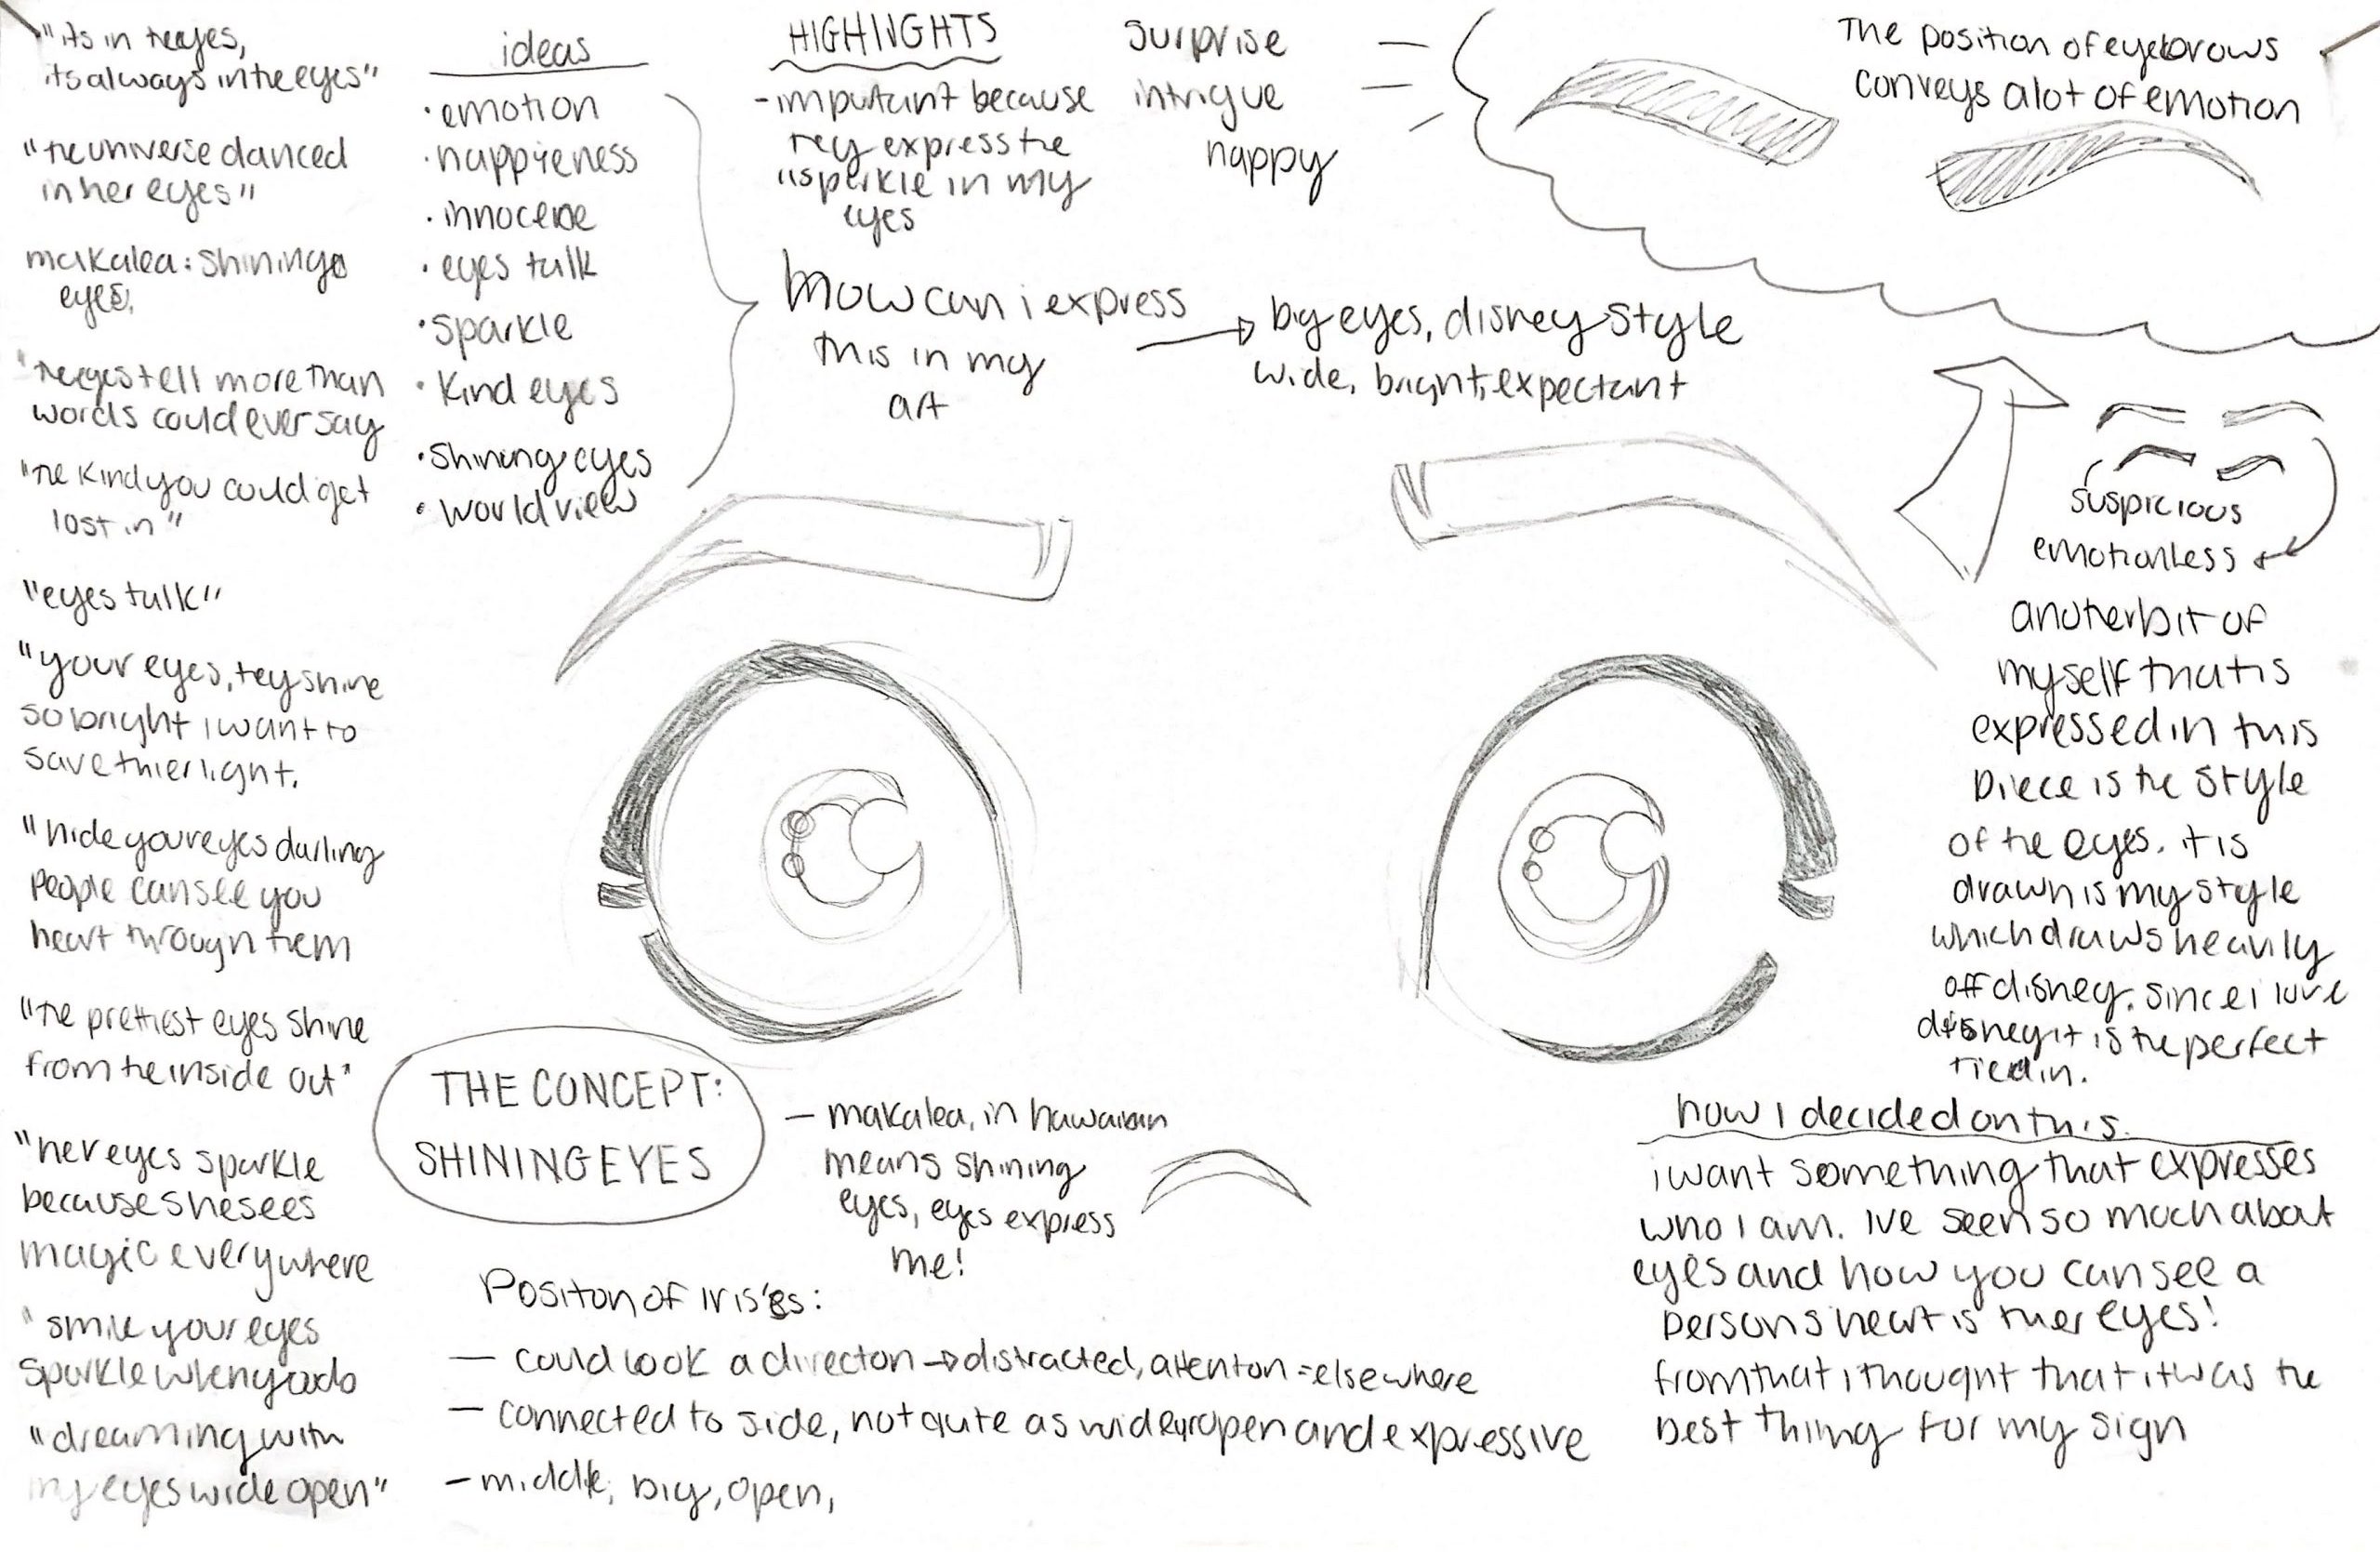 "its in the eyes,
its always in the eyes"
"the universe danced
in her eyes"
makalea: shining
eyes,
"the eyes tell more than
words could ever say
"the kind you could get
lost in"
"eyes talk"
"your eyes, they shine
so bright i want to
save thier light.
"hide your eyes darling
people can see you
heart through them
"the prettiest eyes shine
from the inside out"
"her eyes sparkle
because she sees
magic everywhere
"smile your eyes
sparkle when you do
"dreaming with
my eyes wide open"
ideas
• emotion
• happieness
• innocence
• eyes talk
• sparkle
• kind eyes
• shining eyes
• world view
HIGHLIGHTS
- important because
they express the
"sparkle in my
eyes
how can i express
this in my
art
big eyes, disney style
wide, bright, expectant
surprise
intrigue
happy
The position of eyebrows
conveys a lot of emotion
suspicious
emotionless
another bit of
myself that is
expressed in this
piece is the style
of the eyes. it is
drawn is my style
which draws heavily
off disney. since i love
disney it is the perfect
tied in.
THE CONCEPT:
SHINING EYES
- makalea, in hawaiian
means shining
eyes, eyes express
me!
Positon of iris'es:
- could look a directon → distracted, attenton = elsewhere
- connected to side, not quite as wide open and expressive
- middle, big, open,
how I decided on this.
i want something that expresses
who I am. Ive seen so much about
eyes and how you can see a
persons heart is ther eyes!
from that i thought that it was the
best thing for my sign